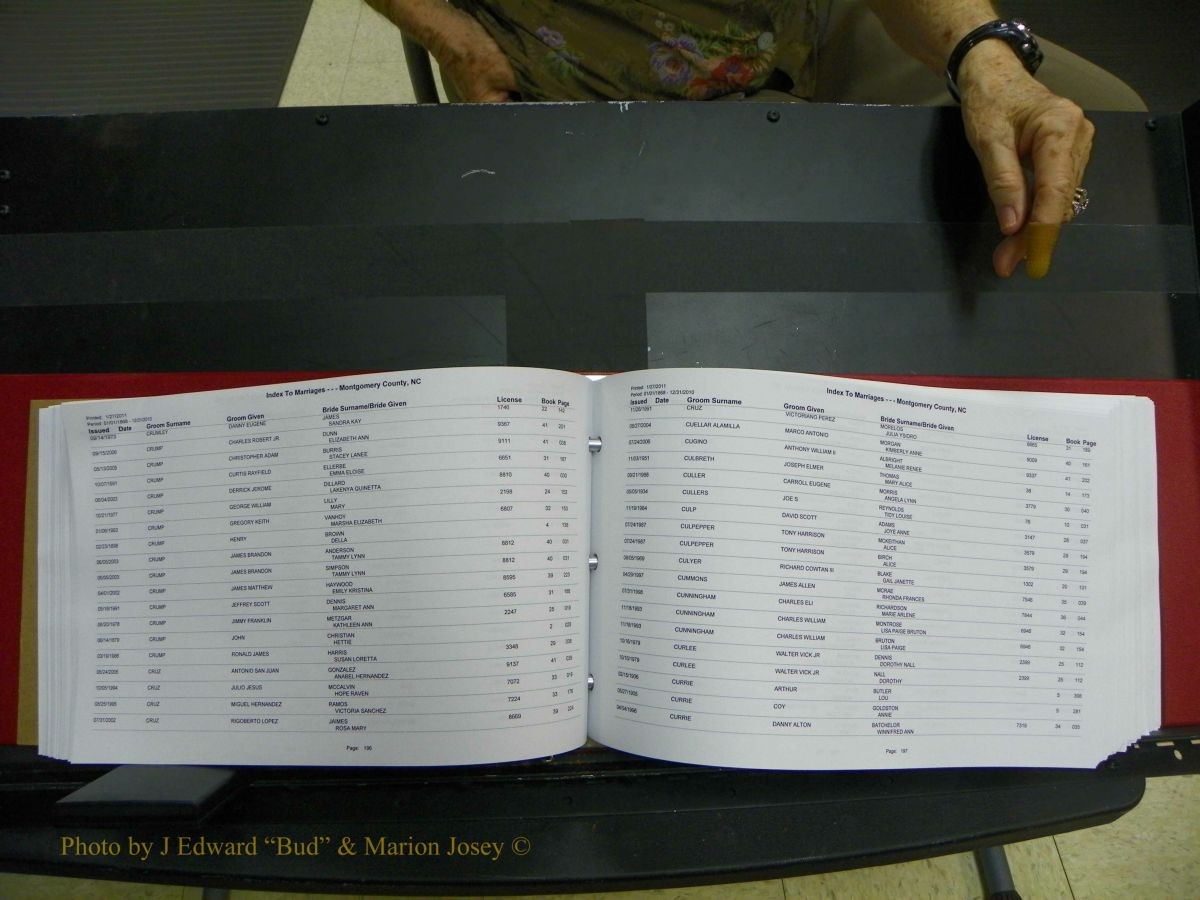 Index To Marriages - - - Montgomery County, NC
Printed: 1/27/2011
Period: 01/01/1868 - 12/31/2010
Issued Date Groom Surname Groom Given Bride Surname/Bride Given License Book Page
09/14/1973 CRUMLEY DANNY EUGENE JAMES 1746 22 142
SANDRA KAY
09/15/2006 CRUMP CHARLES ROBERT JR DUNN 9367 41 201
ELIZABETH ANN
05/13/2005 CRUMP CHRISTOPHER ADAM BURRIS 9111 41
STACEY LANEE
10/07/1991 CRUMP CURTIS RAYFIELD ELLERBE 6651 31 187
EMMA ELOISE
CRUMP DERRICK JEROME DILLARD 8810 40 030
LAKENYA QUINETTA
10/21/1977 CRUMP GEORGE WILLIAM LILLY 2198 24 153
MARY
01/06/1993 CRUMP GREGORY KEITH VANHOY 6807 32
MARSHA ELIZABETH
02/23/1898 CRUMP HENRY BROWN 4 138
DELLA
CRUMP JAMES BRANDON ANDERSON 8812 40 031
TAMMY LYNN
CRUMP JAMES BRANDON SIMPSON 8812 40 031
TAMMY LYNN
04/01/2002 CRUMP JAMES MATTHEW HAYWOOD 8595 39 223
EMILY KRISTINA
CRUMP JEFFREY SCOTT DENNIS 6585 31
MARGARET ANN
CRUMP JIMMY FRANKLIN METZGAR 2247 25 019
KATHLEEN ANN
CRUMP JOHN CHRISTIAN 2 028
HETTIE
CRUMP RONALD JAMES HARRIS 3348 29
SUSAN LORETTA
CRUZ ANTONIO SAN JUAN GONZALEZ 9137 41
ANABEL HERNANDEZ
CRUZ JULIO JESUS MCCALVIN 7072 33
HOPE RAVEN
CRUZ MIGUEL HERNANDEZ RAMOS 7224 33
VICTORIA SANCHEZ
07/31/2002 CRUZ RIGOBERTO LOPEZ JAIMES 8669 39
ROSA MARY
Page: 196
Index To Marriages - - - Montgomery County, NC
Printed: 1/27/2011
Period: 01/01/1868 - 12/31/2010
Issued Date Groom Surname Groom Given Bride Surname/Bride Given License Book Page
11/20/1991 CRUZ VICTORIANO PEREZ MORELOS 31 189
JULIA YSIDRO
CUELLAR ALAMILLA MARCO ANTONIO MORGAN 9009 40 161
KIMBERLY ANNE
07/24/2006 CUGINO ANTHONY WILLIAM II ALBRIGHT 9337 41
MELANIE RENEE
11/03/1951 CULBRETH JOSEPH ELMER THOMAS 38 14 173
MARY ALICE
CULLER CARROLL EUGENE MORRIS 3779 30
ANGELA LYNN
05/05/1934 CULLERS JOE S REYNOLDS 76 10 031
TIDY LOUISE
11/19/1984 CULP DAVID SCOTT ADAMS 3147 28 037
JOYE ANNE
07/24/1987 CULPEPPER TONY HARRISON MCKEITHAN 3579 29 194
ALICE
07/24/1987 CULPEPPER TONY HARRISON BIRCH 3579 29 194
ALICE
CULYER RICHARD COWTAN III BLAKE 1302 20 131
GAIL JANETTE
04/29/1997 CUMMONS JAMES ALLEN MCRAE 35 039
RHONDA FRANCES
CUNNINGHAM CHARLES ELI RICHARDSON 7844 36 044
MARIE ARLENE
11/18/1993 CUNNINGHAM CHARLES WILLIAM MONTROSE 6946 32 154
LISA PAIGE BRUTON
11/18/1993 CUNNINGHAM CHARLES WILLIAM BRUTON 6946 32 154
LISA PAIGE
10/16/1979 CURLEE WALTER VICK JR DENNIS 2399 25 112
DOROTHY NALL
10/16/1979 CURLEE WALTER VICK JR NALL 2399 25 112
DOROTHY
02/15/1906 CURRIE ARTHUR BUTLER 5
LOU
CURRIE COY GOLDSTON 5 281
ANNIE
04/04/1996 CURRIE DANNY ALTON BATCHELOR 7319 34 035
WINNIFRED ANN
Page: 197
Photo by J Edward “Bud” & Marion Josey ©